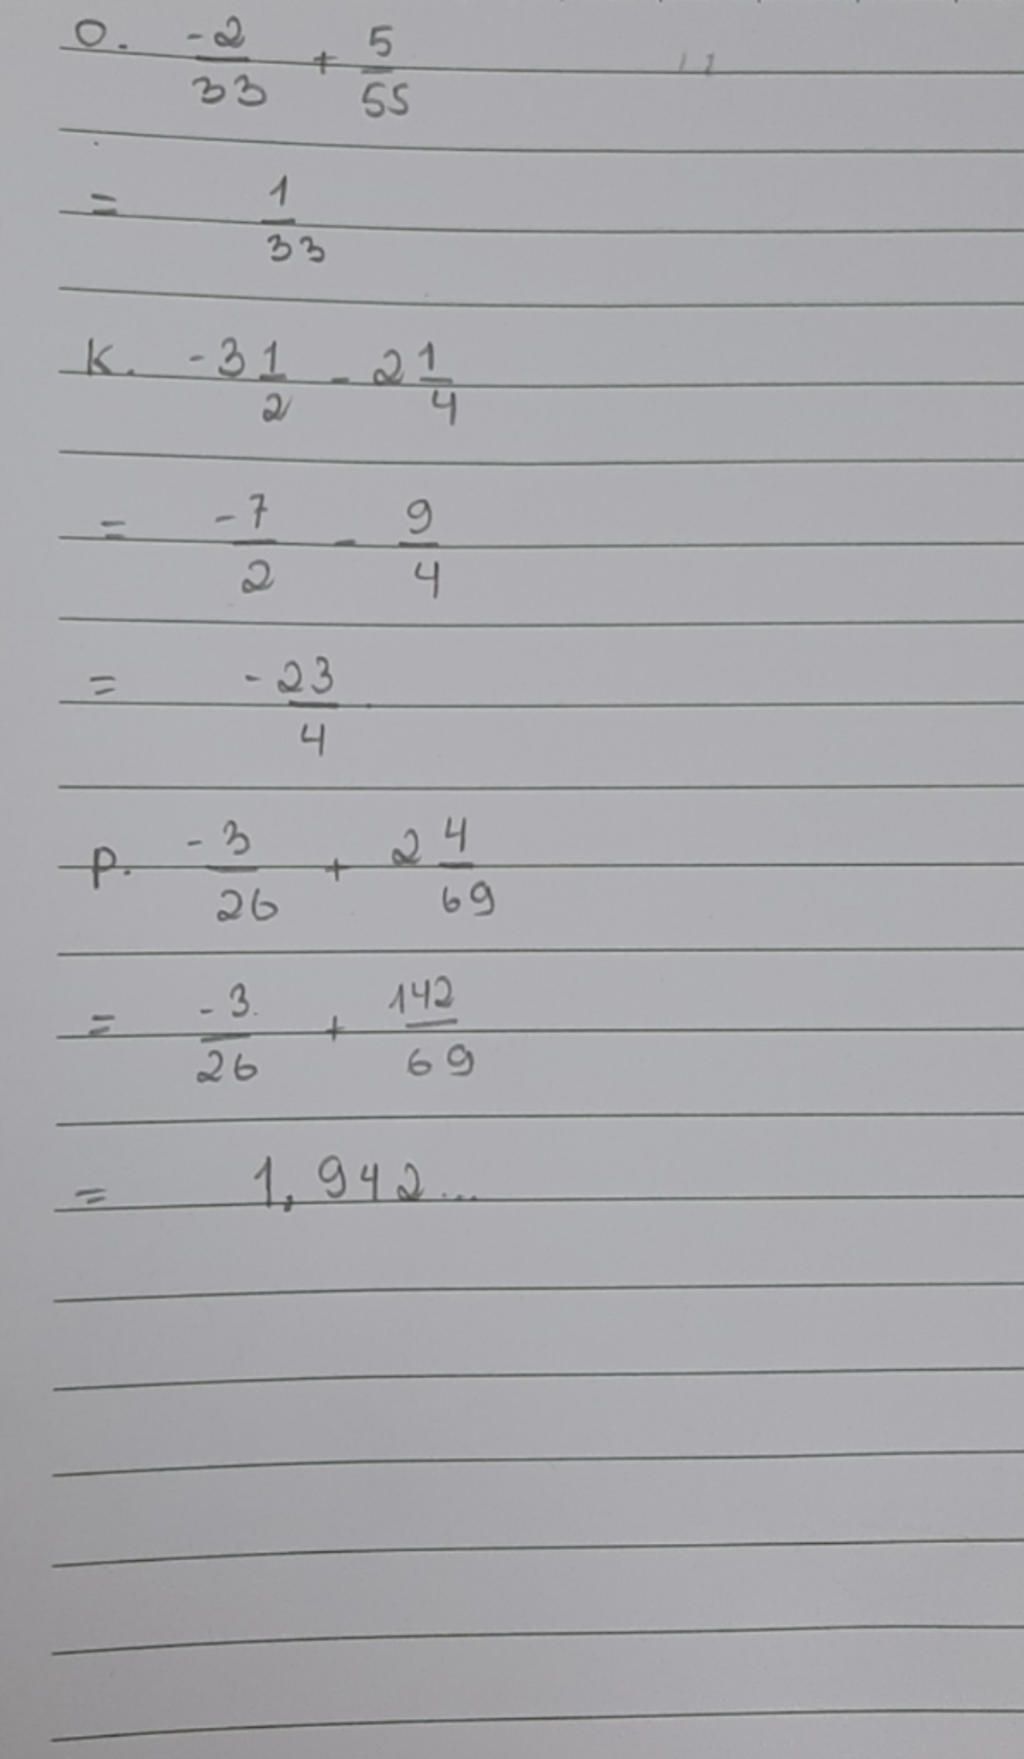 O. -2/33 + 5/55
= 1/33
K. -3 1/2 - 2 1/4
= -7/2 - 9/4
= -23/4
P. -3/26 + 2 4/69
= -3/26 + 142/69
= 1,942...